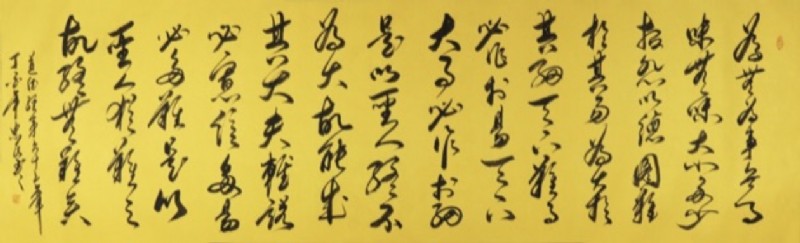 為無為事無事
味無味大小多少
報怨以德圖難
於其易為大於
其細天下難事
必作於易天下
大事必作於細
是以聖人終不
為大故能成
其大夫輕諾
必寡信多易
必多難是以
聖人猶難之
故終無難矣
道德經第六十三章
丁酉年